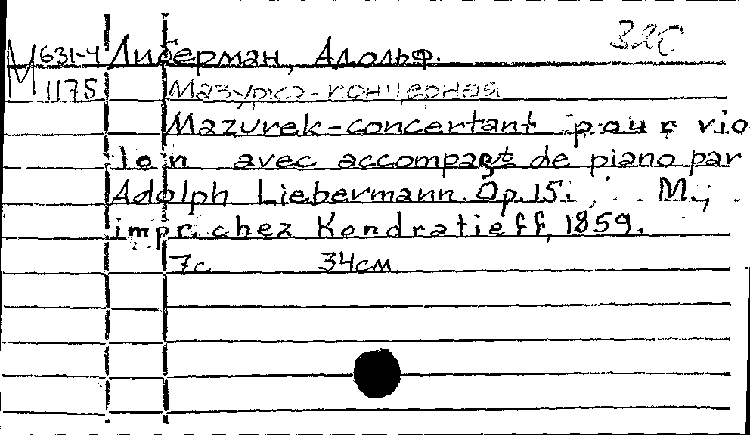 М 631-4 Либерман, Адольф. ЗАС
М 1175 Мазурка-концертная
Mazurek-concertant pour vio
lon avec accompagt de piano par
Adolph Liebermann. Op. 15. M.,
impr. chez Kondratieff, 1859.
7с 34см